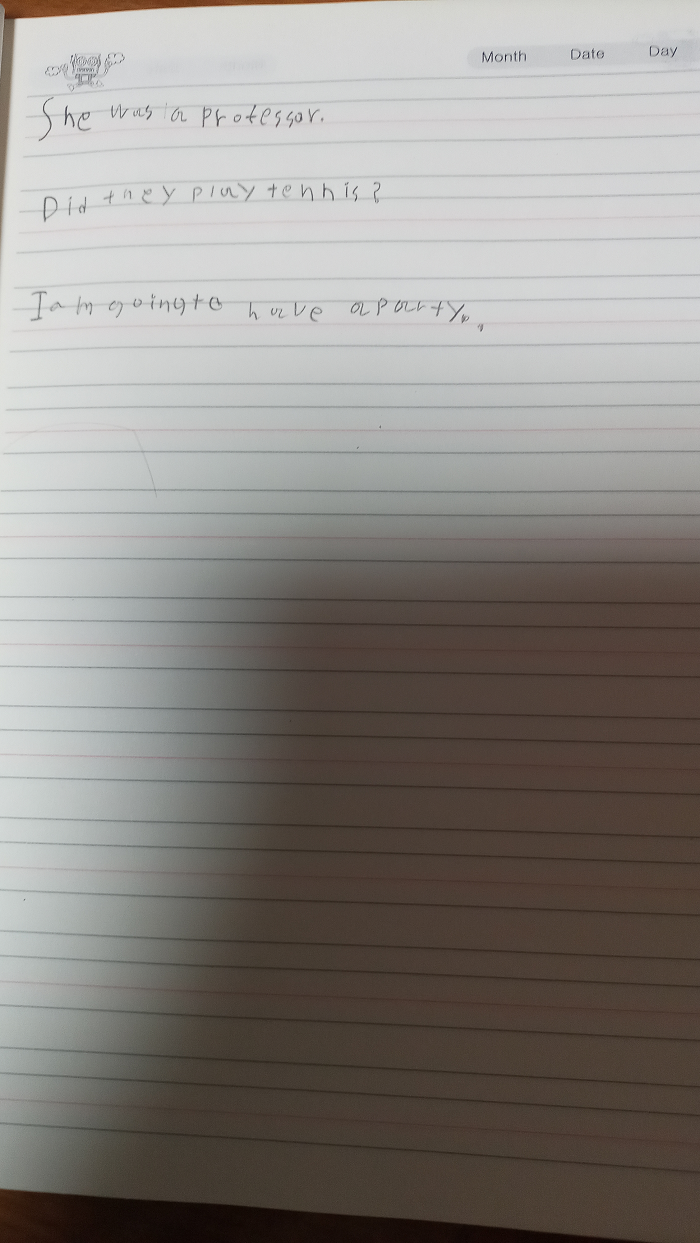 Month Date Day
She was a professor.
Did they play tennis?
I am going to have a party.